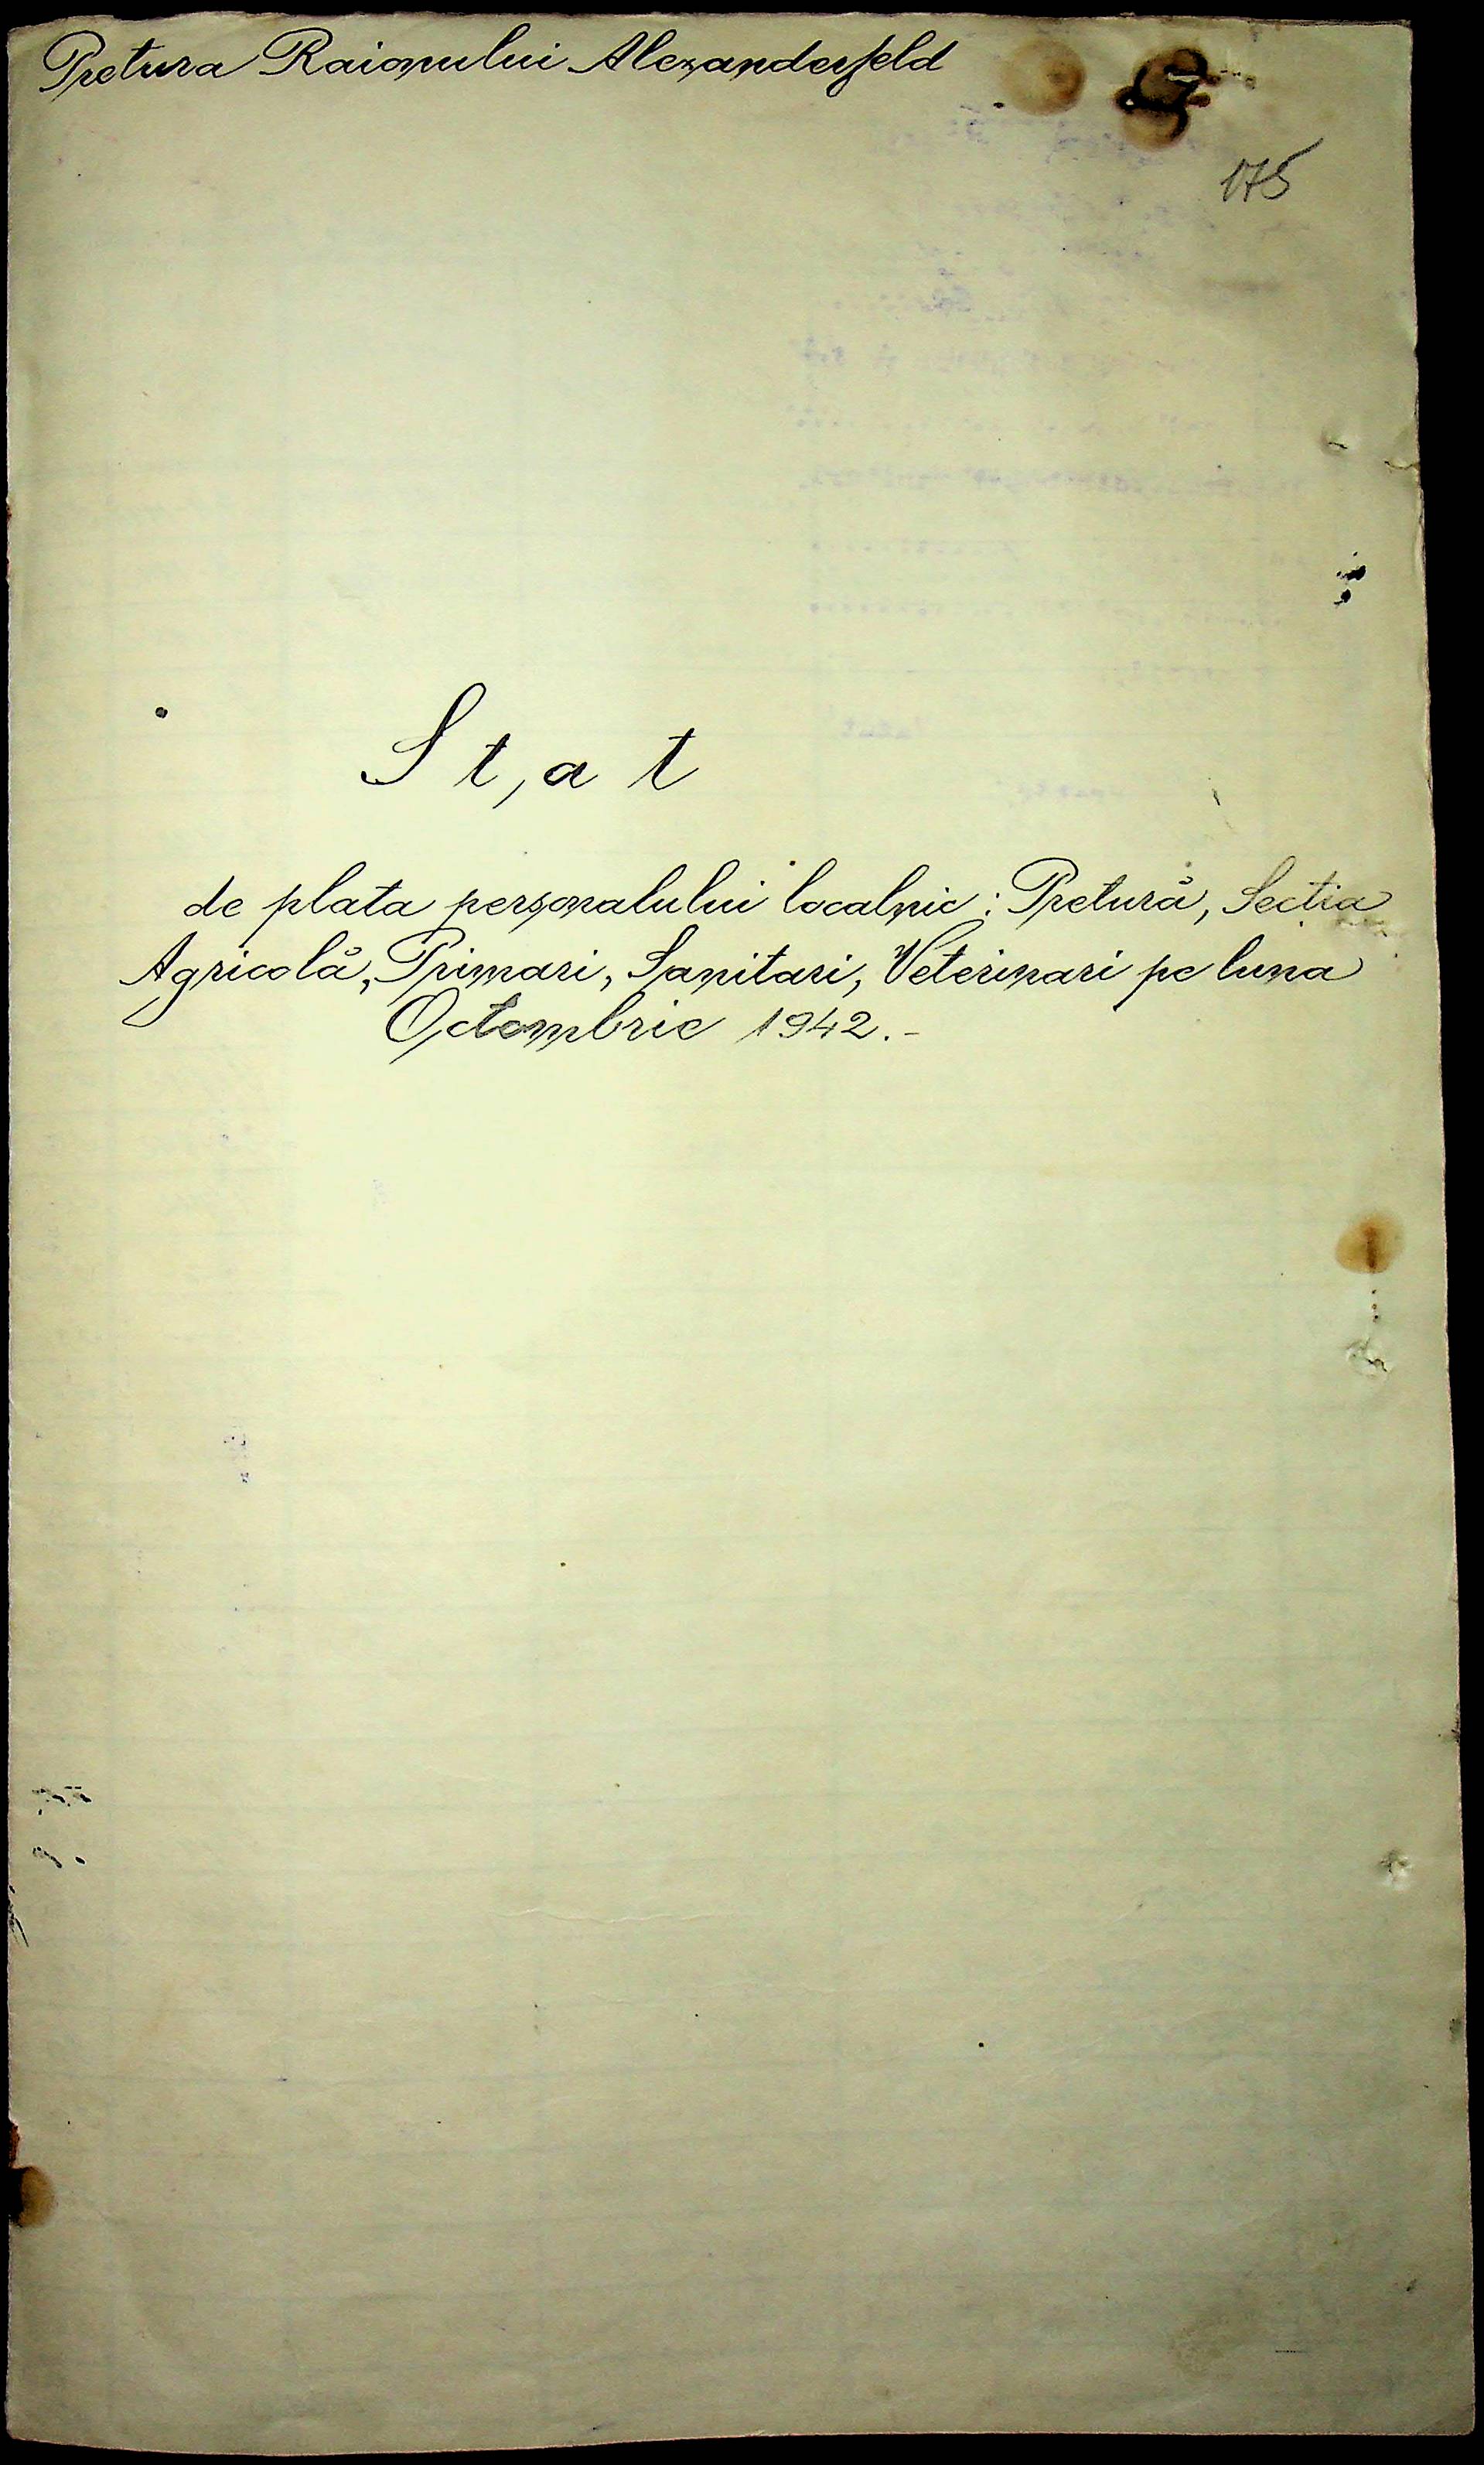 Pretura Raionului Alexanderfeld
175
S t , a t
de plata personalului localnic : Pretură, Secția
Agricolă, Primari, Sanitari, Veterinari pe luna
Octombrie 1942.-